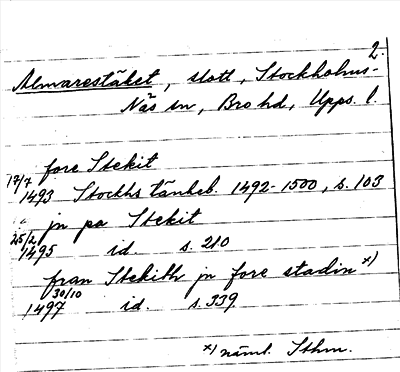 2.
Almarestäket, slott, Stockholms-
Näs sn, Bro hd, Upps. l.
fore Stekit
17/7 1493 Stockhs tänkeb. 1492-1500, s. 103
jn pa Stekit
25/2 1495 id. s. 210
fran Stekith jn fore stadin x)
30/10 1497 id. s. 339
x) näml. Sthm.